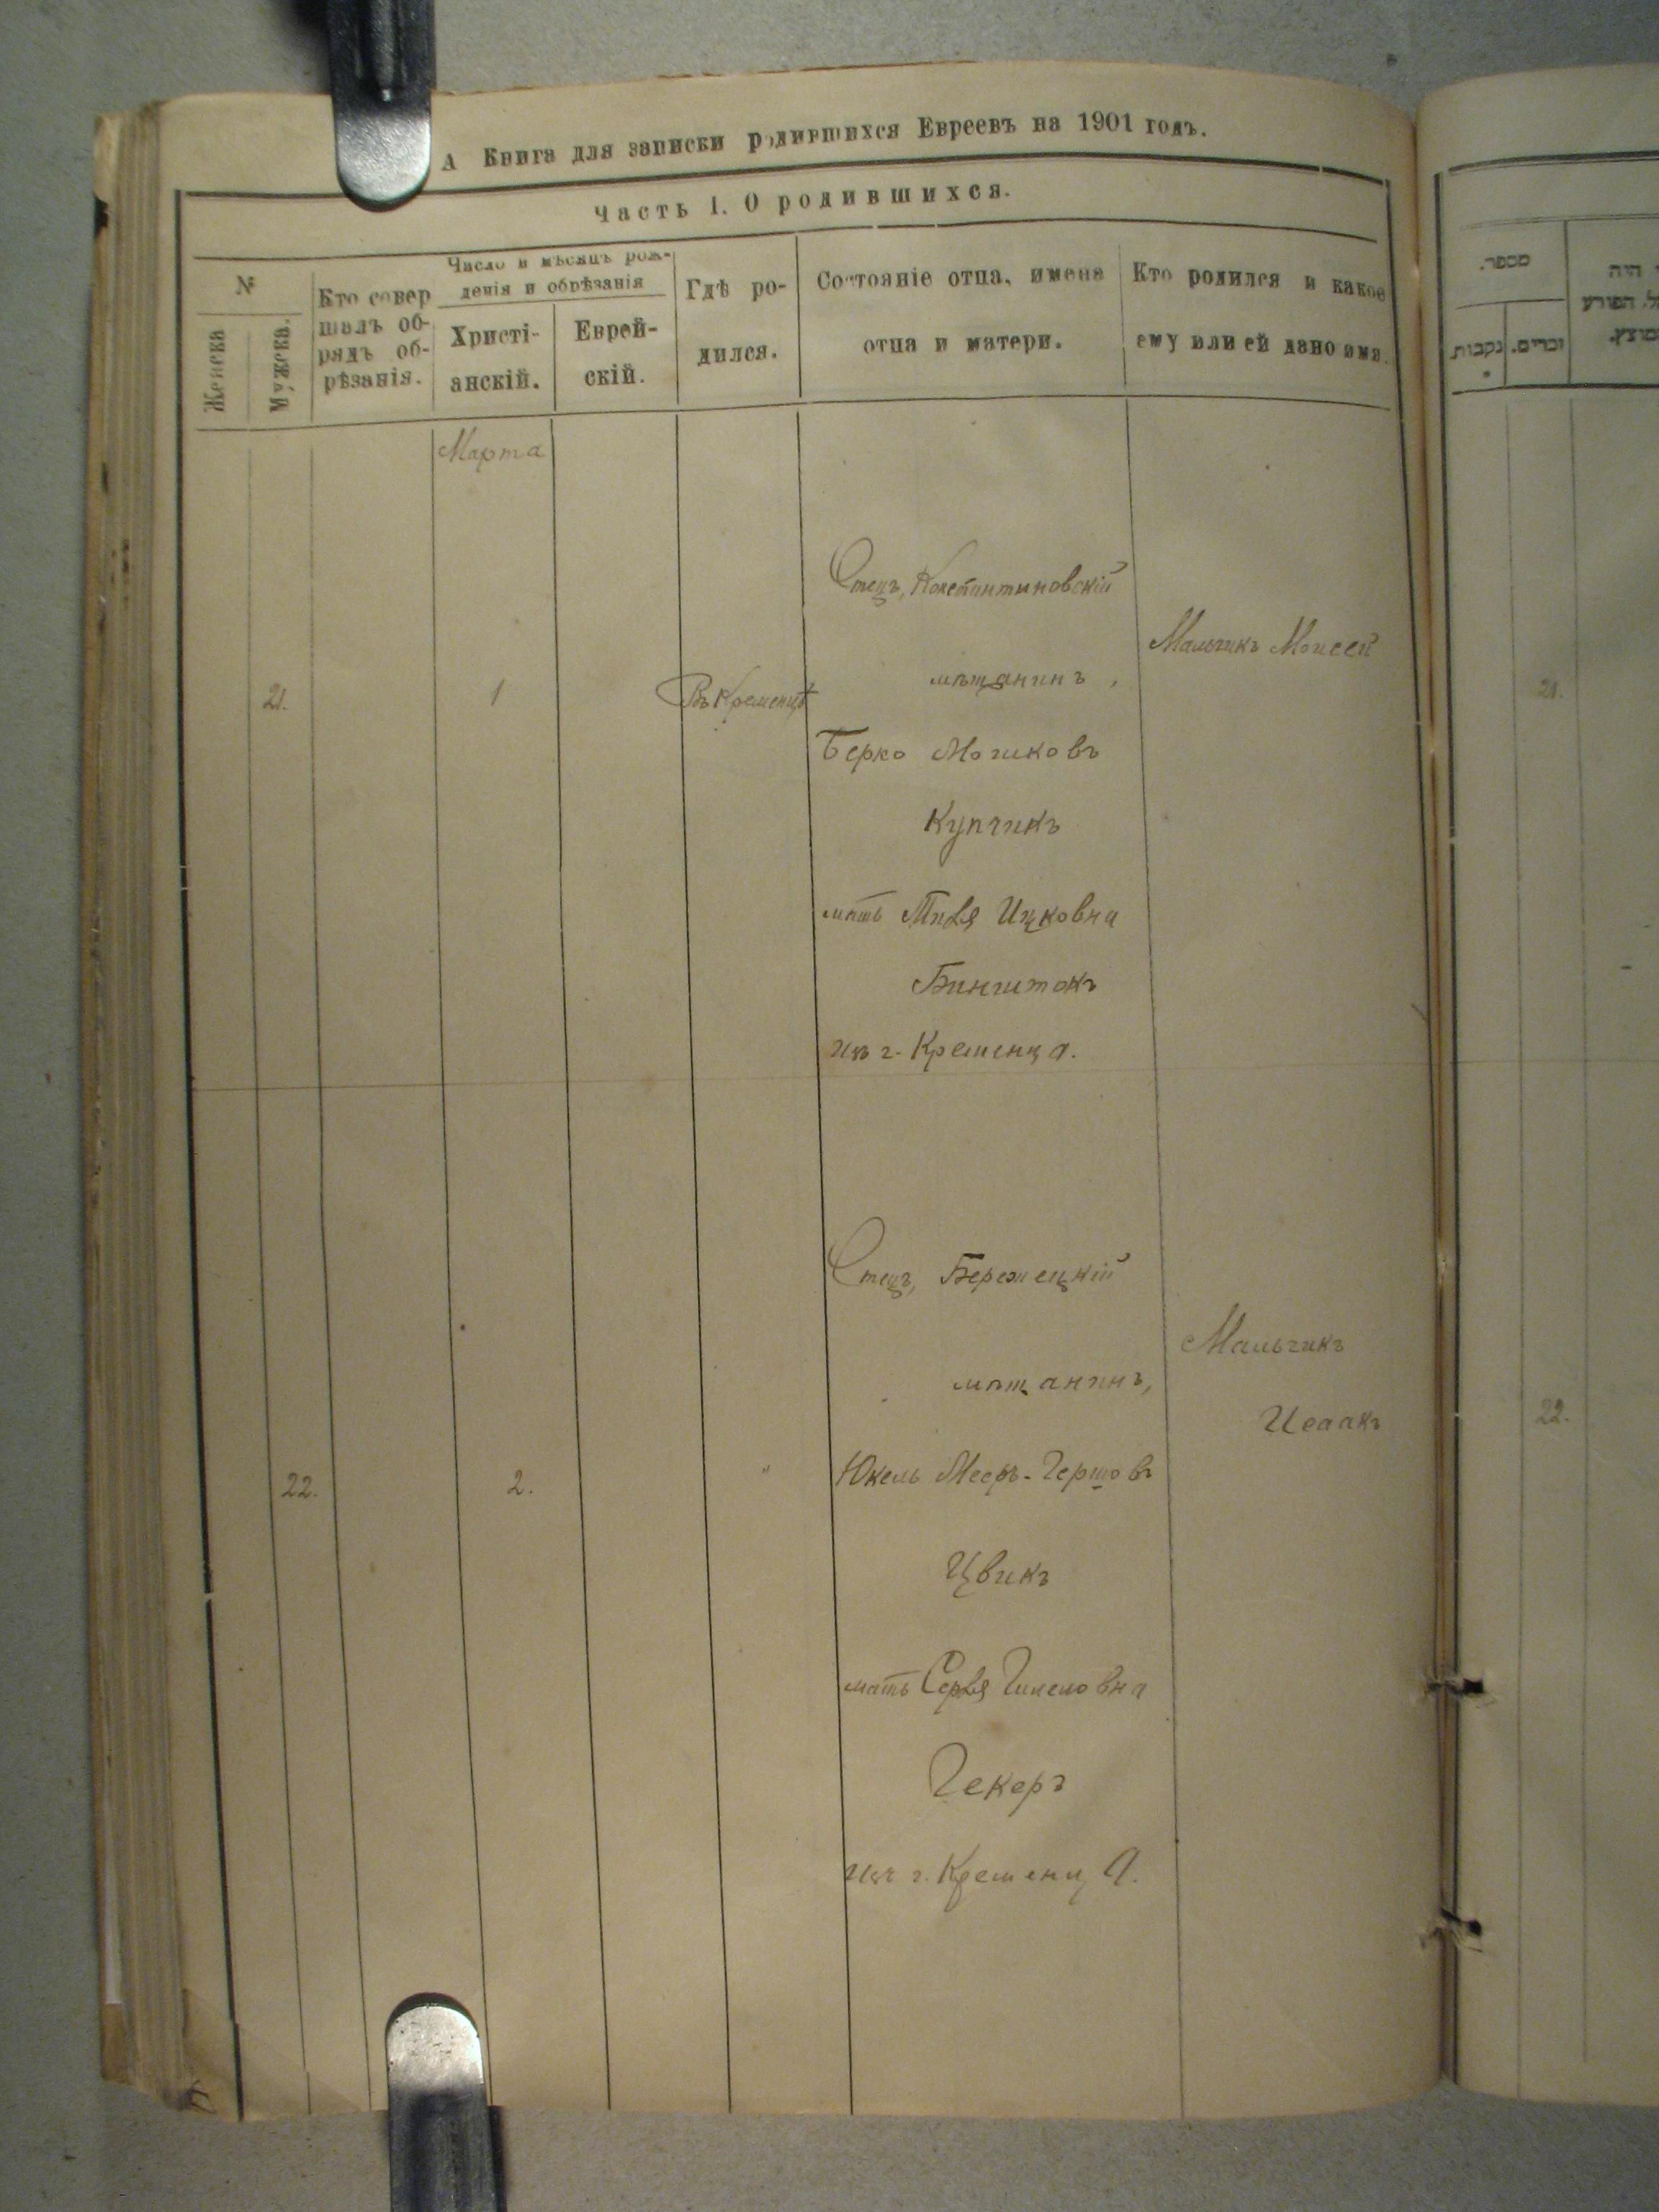 А Книга для записки родившихся Евреевъ на 1901 годъ.
Часть I. О родившихся.
№
Женска
Мужска.
Кто совер
шалъ об-
рядъ об-
рѣзанія.
Число и мѣсяцъ рож-
денія и обрѣзанія
Христі-
анскій.
Еврей-
скій.
Гдѣ ро-
дился.
Состояніе отца, имена
отца и матери.
Кто родился и какое
ему или ей дано имя.
Марта
21.
1
Въ Кременцѣ
Отецъ, Константиновскій
мѣщанинъ,
Берко Мошковъ
Купчикъ
мать Тиля Ицковна
Бинштокъ
изъ г. Кременца.
Мальчикъ Моисей
22.
2.
"
Отецъ, Бережецкій
мѣщанинъ,
Юкель Мееръ-Гершовъ
Цвикъ
мать Серля
Гекеръ
изъ г. Кременца.
Мальчикъ
Исаакъ
מספר.
זכרים.
נקבות
היה
הפורע
21.
22.